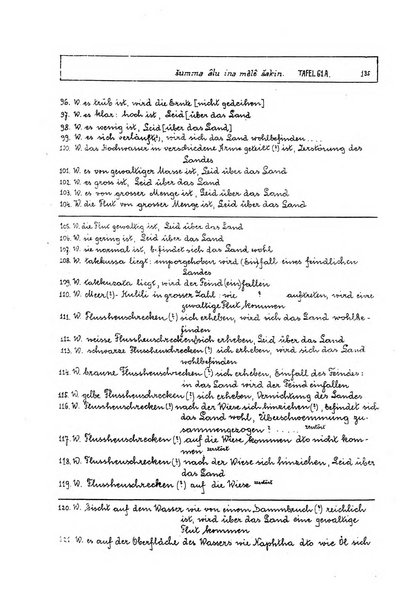 šumma âlu ina mêlê šakin. TAFEL 61A. 135
96. W. es trüb ist, wird die Ernte [nicht gedeihen]
97. W. es klar: hoch ist, Leid [über das Land
98. W. es wenig ist, Leid [über das Land)
99. W. es sich verläuft(?), wird sich das Land wohlbefinden ....
100. W. das Hochwasser in verschiedene Arme geteilt (?) ist, Zerstörung des
Landes
101. W. es von gewaltiger Masse ist, Leid über das Land
102. W. es gross ist, Leid über das Land
103. W. es von grosser Menge ist, Leid über das Land
104. W. die Flut von grosser Menge ist, Leid über das Land
105. W. die Flut gewaltig ist, Leid über das Land
106. W. sie gering ist, Leid über das Land
107. W. sie normal ist, befindet sich das Land wohl
108. W. takkussa liegt: emporgehoben wird (Ein)fall eines feindlichen
Landes
109. W. takkussata liegt, wird der Feind (ein)fallen
110. W. (Meer(?)-Kulili in grosser Zahl: wie ? auftreten, wird eine
gewaltige Flut kommen
111. W. Flussheuschrecken (?) sich erheben, wird sich das Land wohlbe-
finden
112. W. weisse Flussheuschrecken(?) sich erheben, Leid über das Land
113. W. schwarze Flussheuschrecken (?) sich erheben, wird sich das Land
wohlbefinden
114. W. braune Flussheuschrecken (?) sich erheben, Einfall des Feindes:
in das Land wird der Feind einfallen
115. W. gelbe Flussheuschrecken (?) sich erheben, Vernichtung des Landes
116. W. Flussheuschrecken (?) nach der Wiese sich hinziehen (?), befindet sich
das Land wohl, Überschwemmung zu-
sammengezogen ? .... zerstört
117. W. Flussheuschrecken (?) auf die Wiese kommen dto nicht kom-
men zerstört
118. W. Flussheuschrecken (?) nach der Wiese sich hinziehen, Leid über das
Land
119. W. Flussheuschrecken (?) auf die Wiese zerstört
120. W. Gischt auf dem Wasser wie von einem Dammbruch (?) reichlich
ist, wird über das Land eine gewaltige
Flut kommen
121. W. es auf der Oberfläche des Wassers wie Naphtha dto wie Öl sich